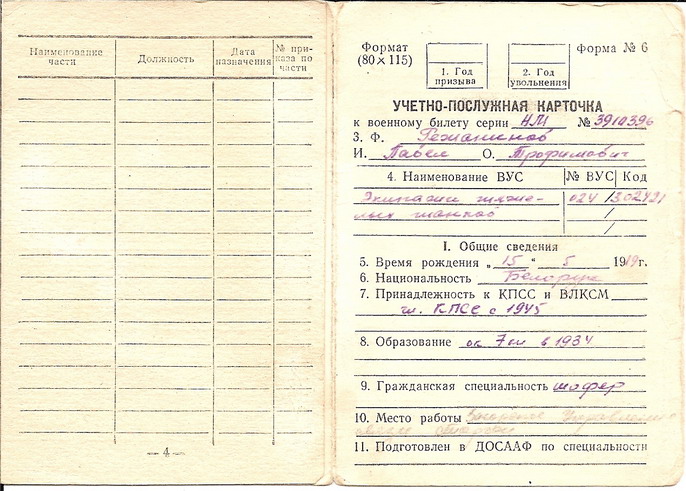 Наименование части
Должность
Дата назначения
№ приказа по части
— 4 —
Формат (80×115)
1. Год призыва
2. Год увольнения
Форма № 6
УЧЕТНО-ПОСЛУЖНАЯ КАРТОЧКА
к военному билету серии НЛ № 3910396
3. Ф.
И. Павел О. Трофимович
4. Наименование ВУС № ВУС Код
Экипажи тяже- 024 /302421
лых танков /
I. Общие сведения
5. Время рождения „ 15 " 5 1919г.
6. Национальность Белорус
7. Принадлежность к КПСС и ВЛКСМ
чл. КПСС с 1945
8. Образование ок 7 кл в 1934
9. Гражданская специальность шофер
10. Место работы
11. Подготовлен в ДОСААФ по специальности